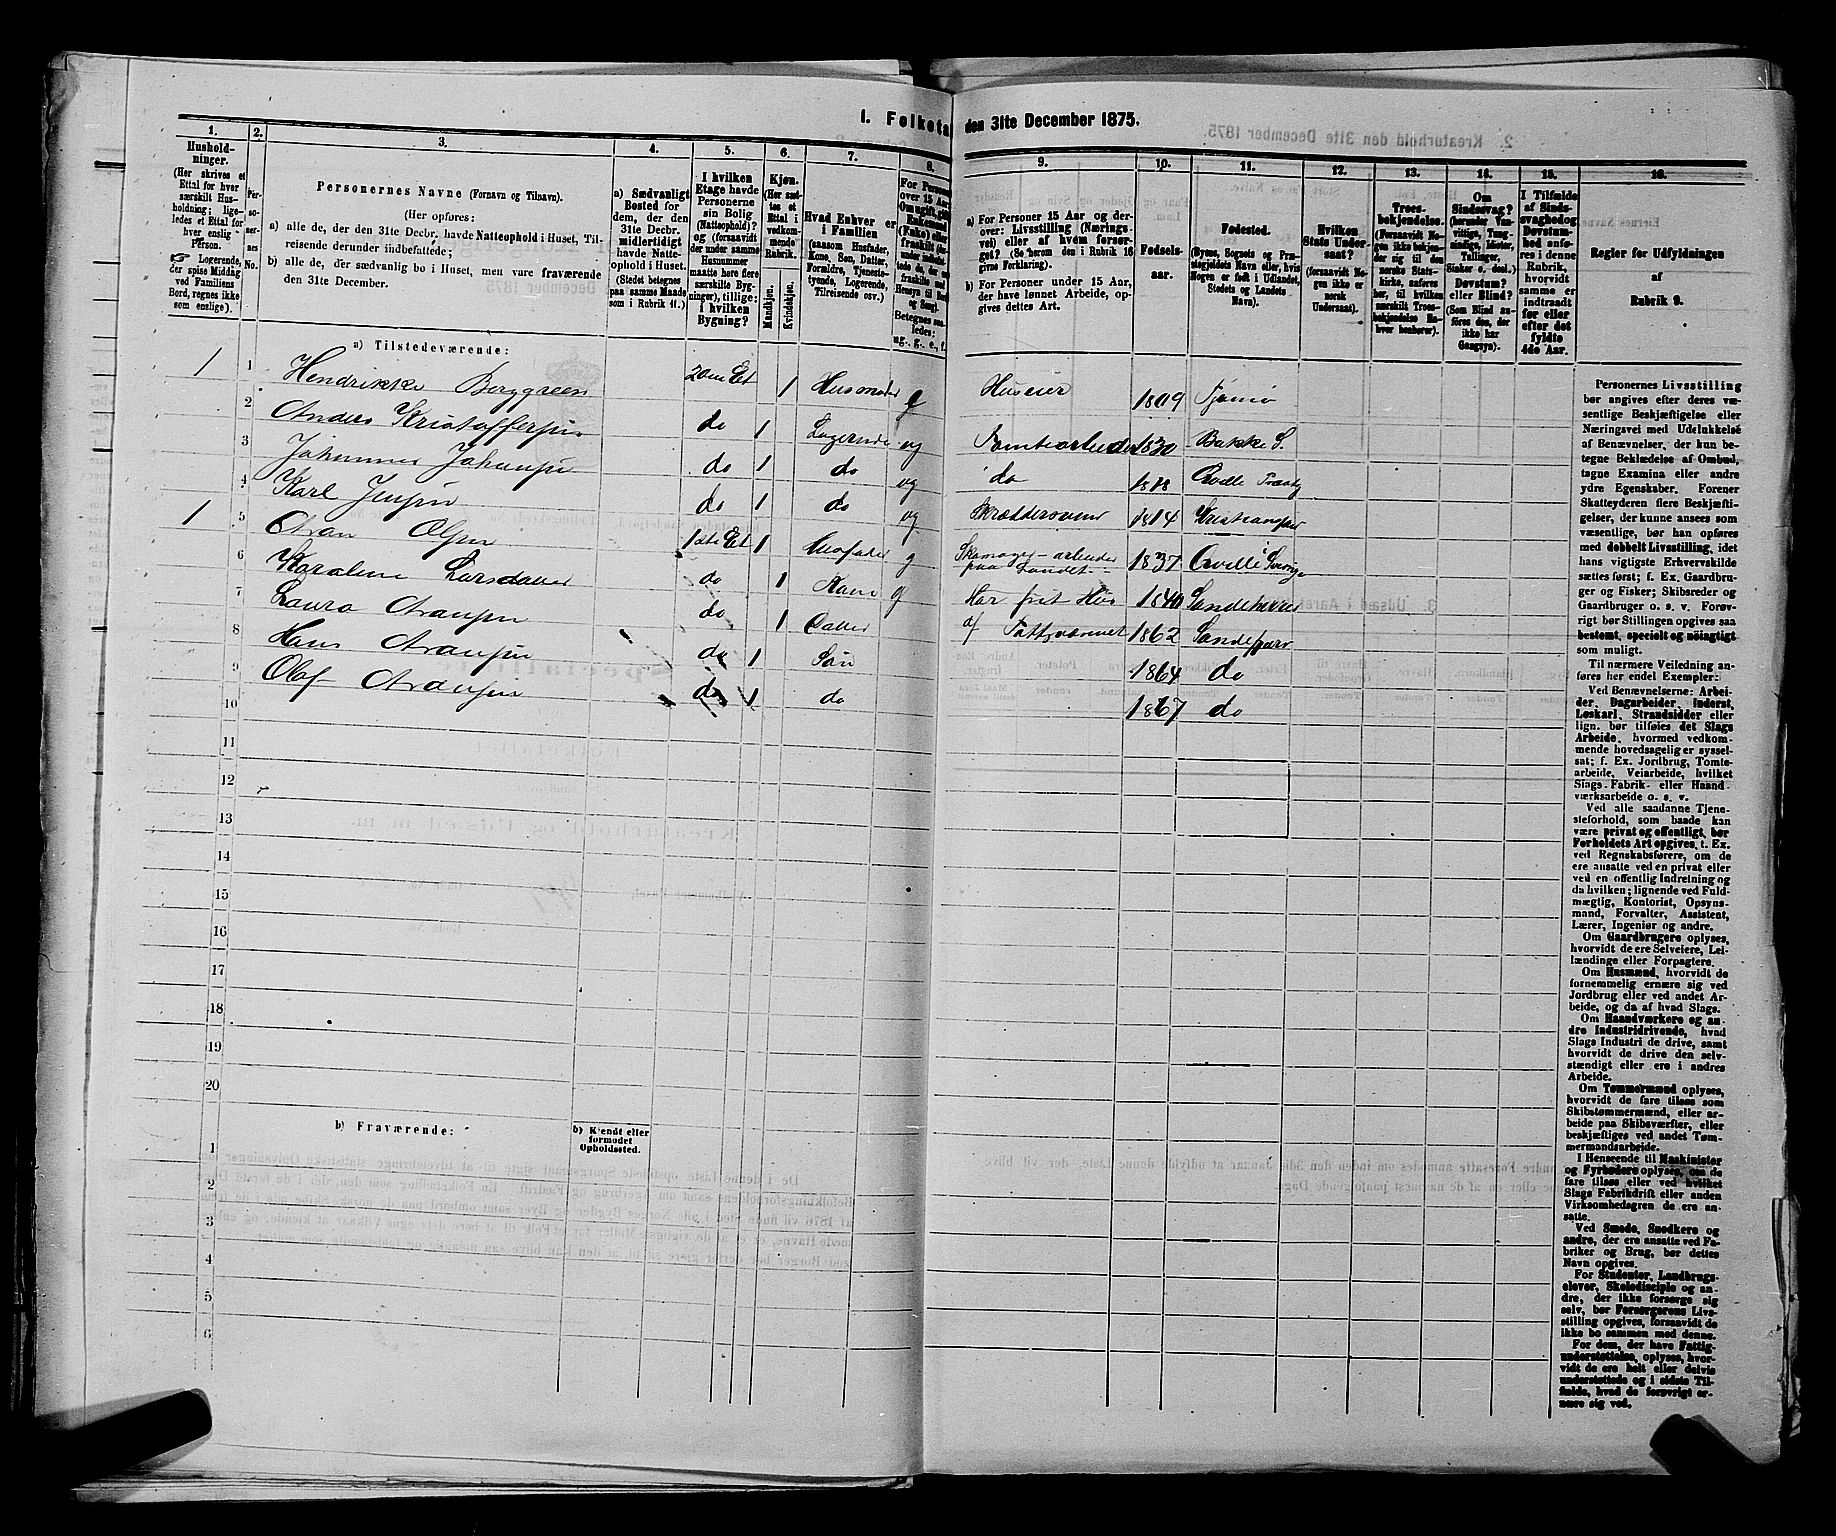 1. Folketæ den 31te December 1875.
1.
2.
3.
4.
5.
6.
7.
8.
9.
10.
11.
12.
13.
14.
15.
16.
Hushold-
ninger.
(Her skrives et
Ettal for hver
særskilt Hus-
holdning; lige-
ledes et Ettal for
hver enslig
Person.
Logerende,
der spise Middag
ved Familiens
Bord, regnes ikke
som enslige).
Per-
so-
ner-
nes
No.
Personernes Navne (Fornavn og Tilnavn).
(Her opføres:
a) alle de, der den 31te Decbr. havde Natteophold i Huset, Til-
reisende derunder indbefattede;
b) alle de, der sædvanlig bo i Huset, men vare fraværende
den 31te December.
a) Sædvanligt
Bosted for
dem, der den
31te Decbr.
midlertidigt
havde Natte-
ophold i Huset.
(Stedet betegnes
paa samme Maade
som i Rubrik 11.)
I hvilken
Etage havde
Personerne
sin Bolig
(Natteophold)?
og (forsaavidt
der under samme
Husnummer
maatte høre flere
særskilte Byg-
ninger), tillige:
i hvilken
Bygning?
Kjøn.
(Her sæt-
tes et
Ettal i
vedkom-
mende
Rubrik.
Mandkjøn.
Kvindekjøn.
Hvad Enhver er
i Familien
(saasom Husfader,
Kone, Søn, Datter,
Forældre, Tjeneste-
tyende, Logerende,
Tilreisende osv.)
a) For Personer 15 Aar og der-
over: Livsstilling (Nærings-
vei) eller af hvem forsør-
get? (Se herom den i Rubrik 16
givne Forklaring).
b) For Personer under 15 Aar,
der have lønnet Arbeide, op-
gives dettes Art.
Fødsels-
aar.
Fødested.
(Byens, Sognets og Præ-
stegjeldets Navn eller, hvis
Nogen er født i Udlandet,
Stedets og Landets
Navn).
Hvilken
Stats Under-
saat?
(forsaavidt No-
gen ikke er
norsk
Undersaat).
Troes-
bekjendelse.
(Forsaavidt No-
gen ikke bekjen-
der sig til den
norske Stats-
kirke, anføres
her, til hvilken
særskilt Troes-
bekjendelse En-
hver henhører).
I Tilfælde
af Sinds-
svaghed og
Døvstum-
hed anfø-
res i denne
Rubrik,
hvorvidt
samme er
indtraadt
før eller
efter det
fyldte
4de Aar.
Regler for Udfyldningen
af
Rubrik 9.
a) Tilstedeværende:
1 1 Hendrikke Berggreen 2den Et 1 Husmoder g Huseier 1809 Tjømø
2 Anders Kristoffersen do 1 Logerende ug Tomtearbeider 1830 Bakke S.
3 Johannes Johansen do 1 do ug do 1818
4 Karl Jensen do 1 do ug Skræddersvend 1814
1 5 Aran Olsen 1ste Et 1 Husfader g Skomager-arbeider paa Landet 1837
6 Karoline Larsdatter do 1 Kone g Har frit Hus 1840 Sandeherred
7 Laura Aransen do 1 Datter af Fattigvæsenet 1862 Sandefjord
8 Hans Aransen do 1 Søn 1864 do
9 Olaf Aransen do 1 do 1867 do
10
11
12
13
14
15
16
17
18
19
20
b) Fraværende:
b) Kjendt eller
formodet
Opholdssted.
1
2
3
4
5
6
Personernes Livsstilling
bør angives efter deres væ-
sentlige Beskjæftigelse eller
Næringsvei med Udelukkelse
af Benævnelser, der kun be-
tegne Beklædelse af Ombud,
tagne Examina eller andre
ydre Egenskaber. Forener
Skatteyderen flere Beskjæfti-
gelser, der kunne ansees som
væsentlige, bør han opføres
med dobbelt Livsstilling, idet
hans vigtigste Erhvervskilde
sættes først; f. Ex. Gaardbru-
ger og Fisker; Skibsreder og
Gaardbruger o. s. v. Forøv-
rigt bør Stillingen opgives saa
bestemt, specielt og nøiagtigt
som muligt.
Til nærmere Veiledning an-
føres her endel Exempler:
Ved Benævnelserne: Arbei-
der, Dagarbeider, Inderst,
Løskarl, Strandsidder eller
lign. bør tilføies det Slags
Arbeide, hvormed vedkom-
mende hovedsagelig er syssel-
sat; f. Ex. Jordbrug, Tomte-
arbeide, Veiarbeide, hvilket
Slags Fabrik- eller Haand
værksarbeide o. s. v.
Ved alle saadanne Tjene-
steforhold, som baade kan
være privat og offentligt, bør
Forholdets Art opgives, t. Ex.
ved Regnskabsførere, om de
ere ansatte ved en privat eller
ved en offentlig Indretning og
da hvilken; lignende ved Fuld-
mægtig, Kontorist, Opsyns-
mand, Forvalter, Assistent,
Lærer, Ingeniør og andre.
Om Gaardbrugere oplyses,
hvorvidt de ere Selveiere, Lei-
lændinge eller Forpagtere.
Om Husmænd, hvorvidt de
fornemmelig ernære sig ved
Jordbrug eller ved andet Ar-
beide, og da af hvad Slags.
Om Haandværkere og an-
dre Industridrivende, hvad
Slags Industri de drive, samt
hvorvidt de drive den selv-
stændigt eller ere i andres
Arbeide.
Om Tømmermænd oplyses,
hvorvidt de fare tilsøs som
Skibstømmermænd, eller ar-
beide paa Skibsværfter, eller
beskjæftiges ved andet Tøm-
mermandsarbeide.
I Henseende til Maskinister
og Fyrbødere oplyses, om de
fare tilsøs eller ved hvilket
Slags Fabrikdrift eller anden
Virksomhedsgren de ere an-
satte.
Ved Smede, Snedkere og
andre, der ere ansatte ved Fa-
briker og Brug, bør dettes
Navn opgives.
For Studenter, Landbrugs-
elever, Skoledisciple og an-
dre, der ikke forsørge sig
selv, bør Forsørgerens Livs-
stilling opgives, forsaavidt de
ikke bo sammen med denne.
For dem, der have Fattig-
understøttelse, oplyses, hvor-
vidt de ere helt eller delvis
understøttede og i sidste Til-
fælde, hvad de forøvrigt er-
nære sig ved.